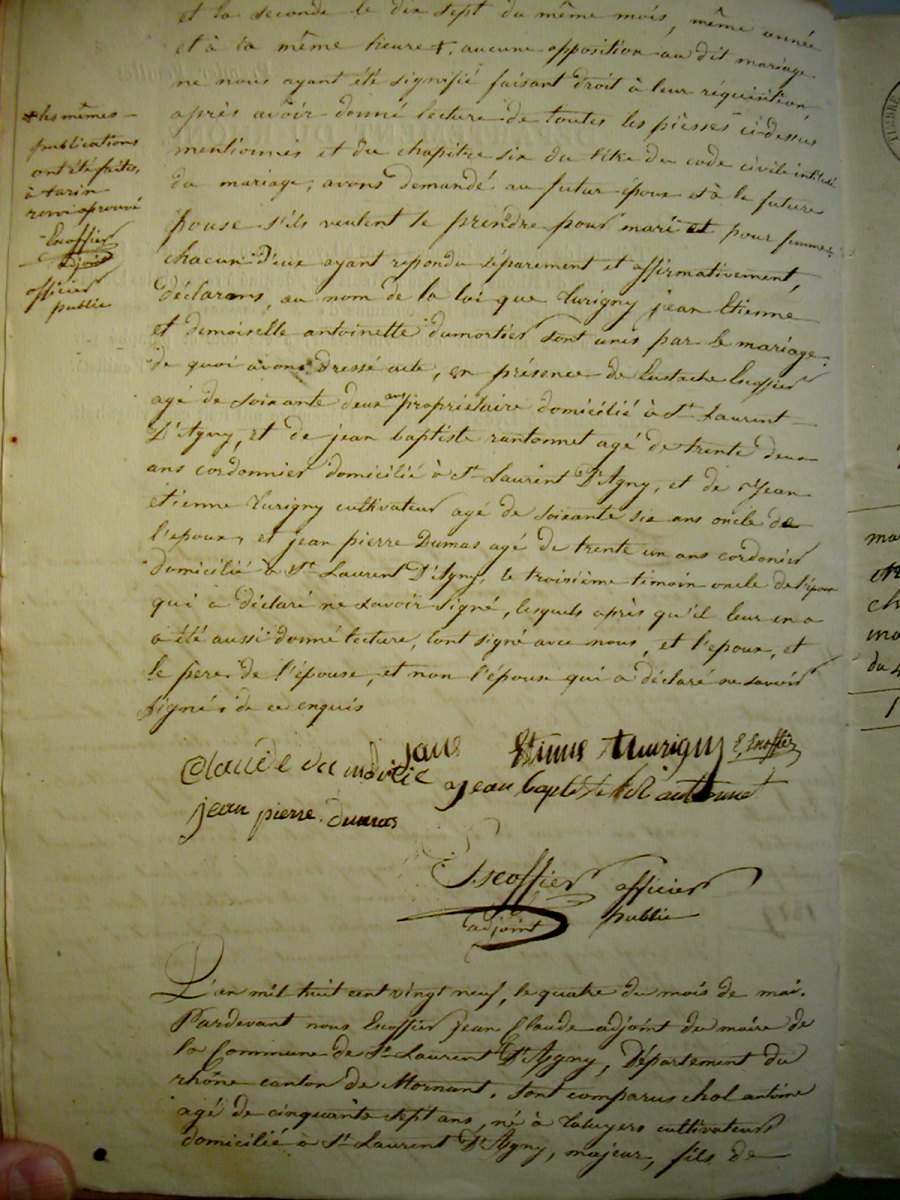 et la seconde le dix sept du même mois, même année
et à la même heure +. aucune opposition au dit mariage
ne nous ayant été signifié faisant droit à leur réquisition
après avoir donné lecture de toutes les piesses ci-dessus
mentionnés et du chapitre six du titre du code civile intitulé
du mariage, avons demandé au futur époux et à le future
pouse s'ils veulent se prendre pour mari et pour femme,
chacun d'eux ayant repondu séparement et affirmativement,
déclarons, au nom de la loi que Turigny jean Etienne
et demoiselle antoinette dumortier sont unis par le mariage.
de quoi avons dressé acte, en présence de Eustache Escoffier
agé de soixante deux ans propriétaire domicilié à St Laurent
D'Agny, et de jean baptiste rantonnet agé de trente deux
ans cordonnier domicilié à St Laurent D'Agny, et de jean
étienne Turigny cultivateur agé de soixante six ans oncle de
l'epoux, et jean pierre Dumas agé de trente un ans cordonier
domicilié à St Laurent D'Agny, le troisième témoin oncle de l'époux
qui a déclaré ne savoir signé, lesquels après qu'il leur en a
a été aussi donné lecture, l'ont signé avec nous, et l'epoux, et
le père de l'épouse, et non l'épouse qui a déclaré ne savoir
signé, de ce enquis
+ les mêmes
publications
ont été faites,
à tarin
renvi aprouvé
Escoffier
adjoint
officier
public
Claude
Etienne turigny
E, Escoffier
jean baptiste
jean pierre dumas
Escoffier officier
adjoint public
L'an mil huit cent vingt neuf, le quatre du mois de mai.
Pardevant nous Escoffier jean Claude adjoint du maire de
la Commune de St Laurent D'Agny, Département du
rhône canton de Mornant. sont comparus chol antoine
agé de cinquante sept ans, né à taluyers cultivateur
domicilié à St Laurent D'Agny, majeur, fils de
1829